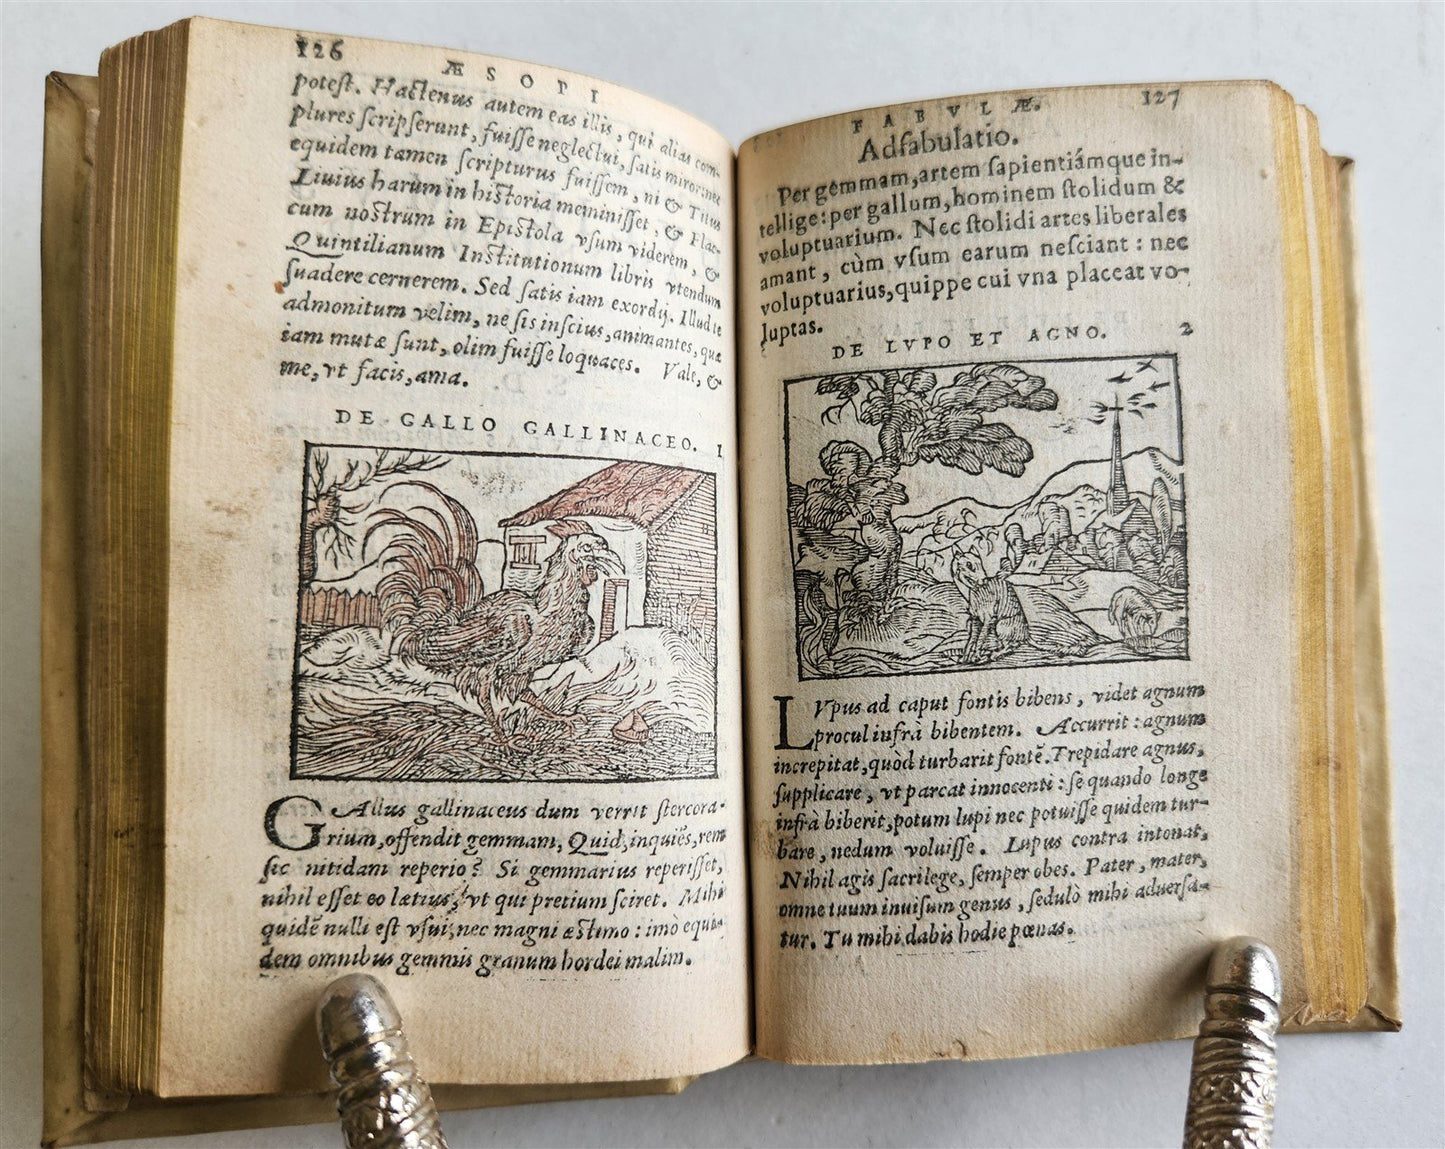 126
ÆSOPI
potest. Hactenus autem eas illis, qui alias com-
plures scripserunt, fuisse neglectui, satis miror: nec
equidem tamen scripturus fuissem, ni & Titus
Liuius harum in historia meminisset, & Flac-
cum nostrum in Epistola vsum viderem, &
Quintilianum Institutionum libris vtendum
suadere cernerem. Sed satis iam exordij. Illud te
admonitum velim, ne sis inscius, animantes, quæ
iam mutæ sunt, olim fuisse loquaces. Vale, &
me, vt facis, ama.
DE GALLO GALLINACEO. 1
GAllus gallinaceus dum verrit stercora-
rium, offendit gemmam, Quid, inquiēs, rem
sic nitidam reperio? Si gemmarius reperisset,
nihil esset eo lætius, vt qui pretium sciret. Mihi
quidē nulli est vsui, nec magni æstimo: imò equi-
dem omnibus gemmis granum hordei malim.
FABVLÆ. 127
Adfabulatio.
Per gemmam, artem sapientiámque in-
tellige: per gallum, hominem stolidum &
voluptuarium. Nec stolidi artes liberales
amant, cùm vsum earum nesciant: nec
voluptuarius, quippe cui vna placeat vo-
luptas.
DE LVPO ET AGNO. 2
LVpus ad caput fontis bibens, videt agnum
procul infrà bibentem. Accurrit: agnum
increpitat, quòd turbarit fontē. Trepidare agnus,
supplicare, vt parcat innocenti: se quando longe
infrà biberit, potum lupi nec potuisse quidem tur-
bare, nedum voluisse. Lupus contra intonat,
Nihil agis sacrilege, semper obes. Pater, mater,
omne tuum inuisum genus, sedulò mihi aduersa-
tur. Tu mihi dabis hodie pœnas.